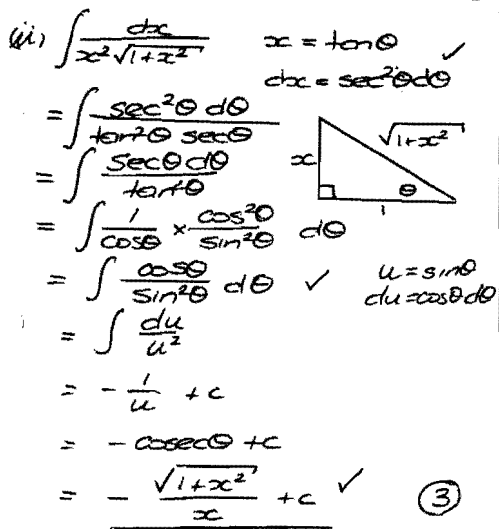 (iii) ∫ dx / (x²√(1+x²))   x = tanθ ✓
dx = sec²θdθ
= ∫ sec²θ dθ / (tan²θ secθ)
√(1+x²)
x
θ
1
= ∫ secθ dθ / tan²θ
= ∫ 1/cosθ × cos²θ/sin²θ dθ
= ∫ cosθ/sin²θ dθ ✓   u = sinθ
du = cosθ dθ
= ∫ du/u²
= - 1/u + c
= - cosecθ + c
= - √(1+x²)/x + c ✓   ③